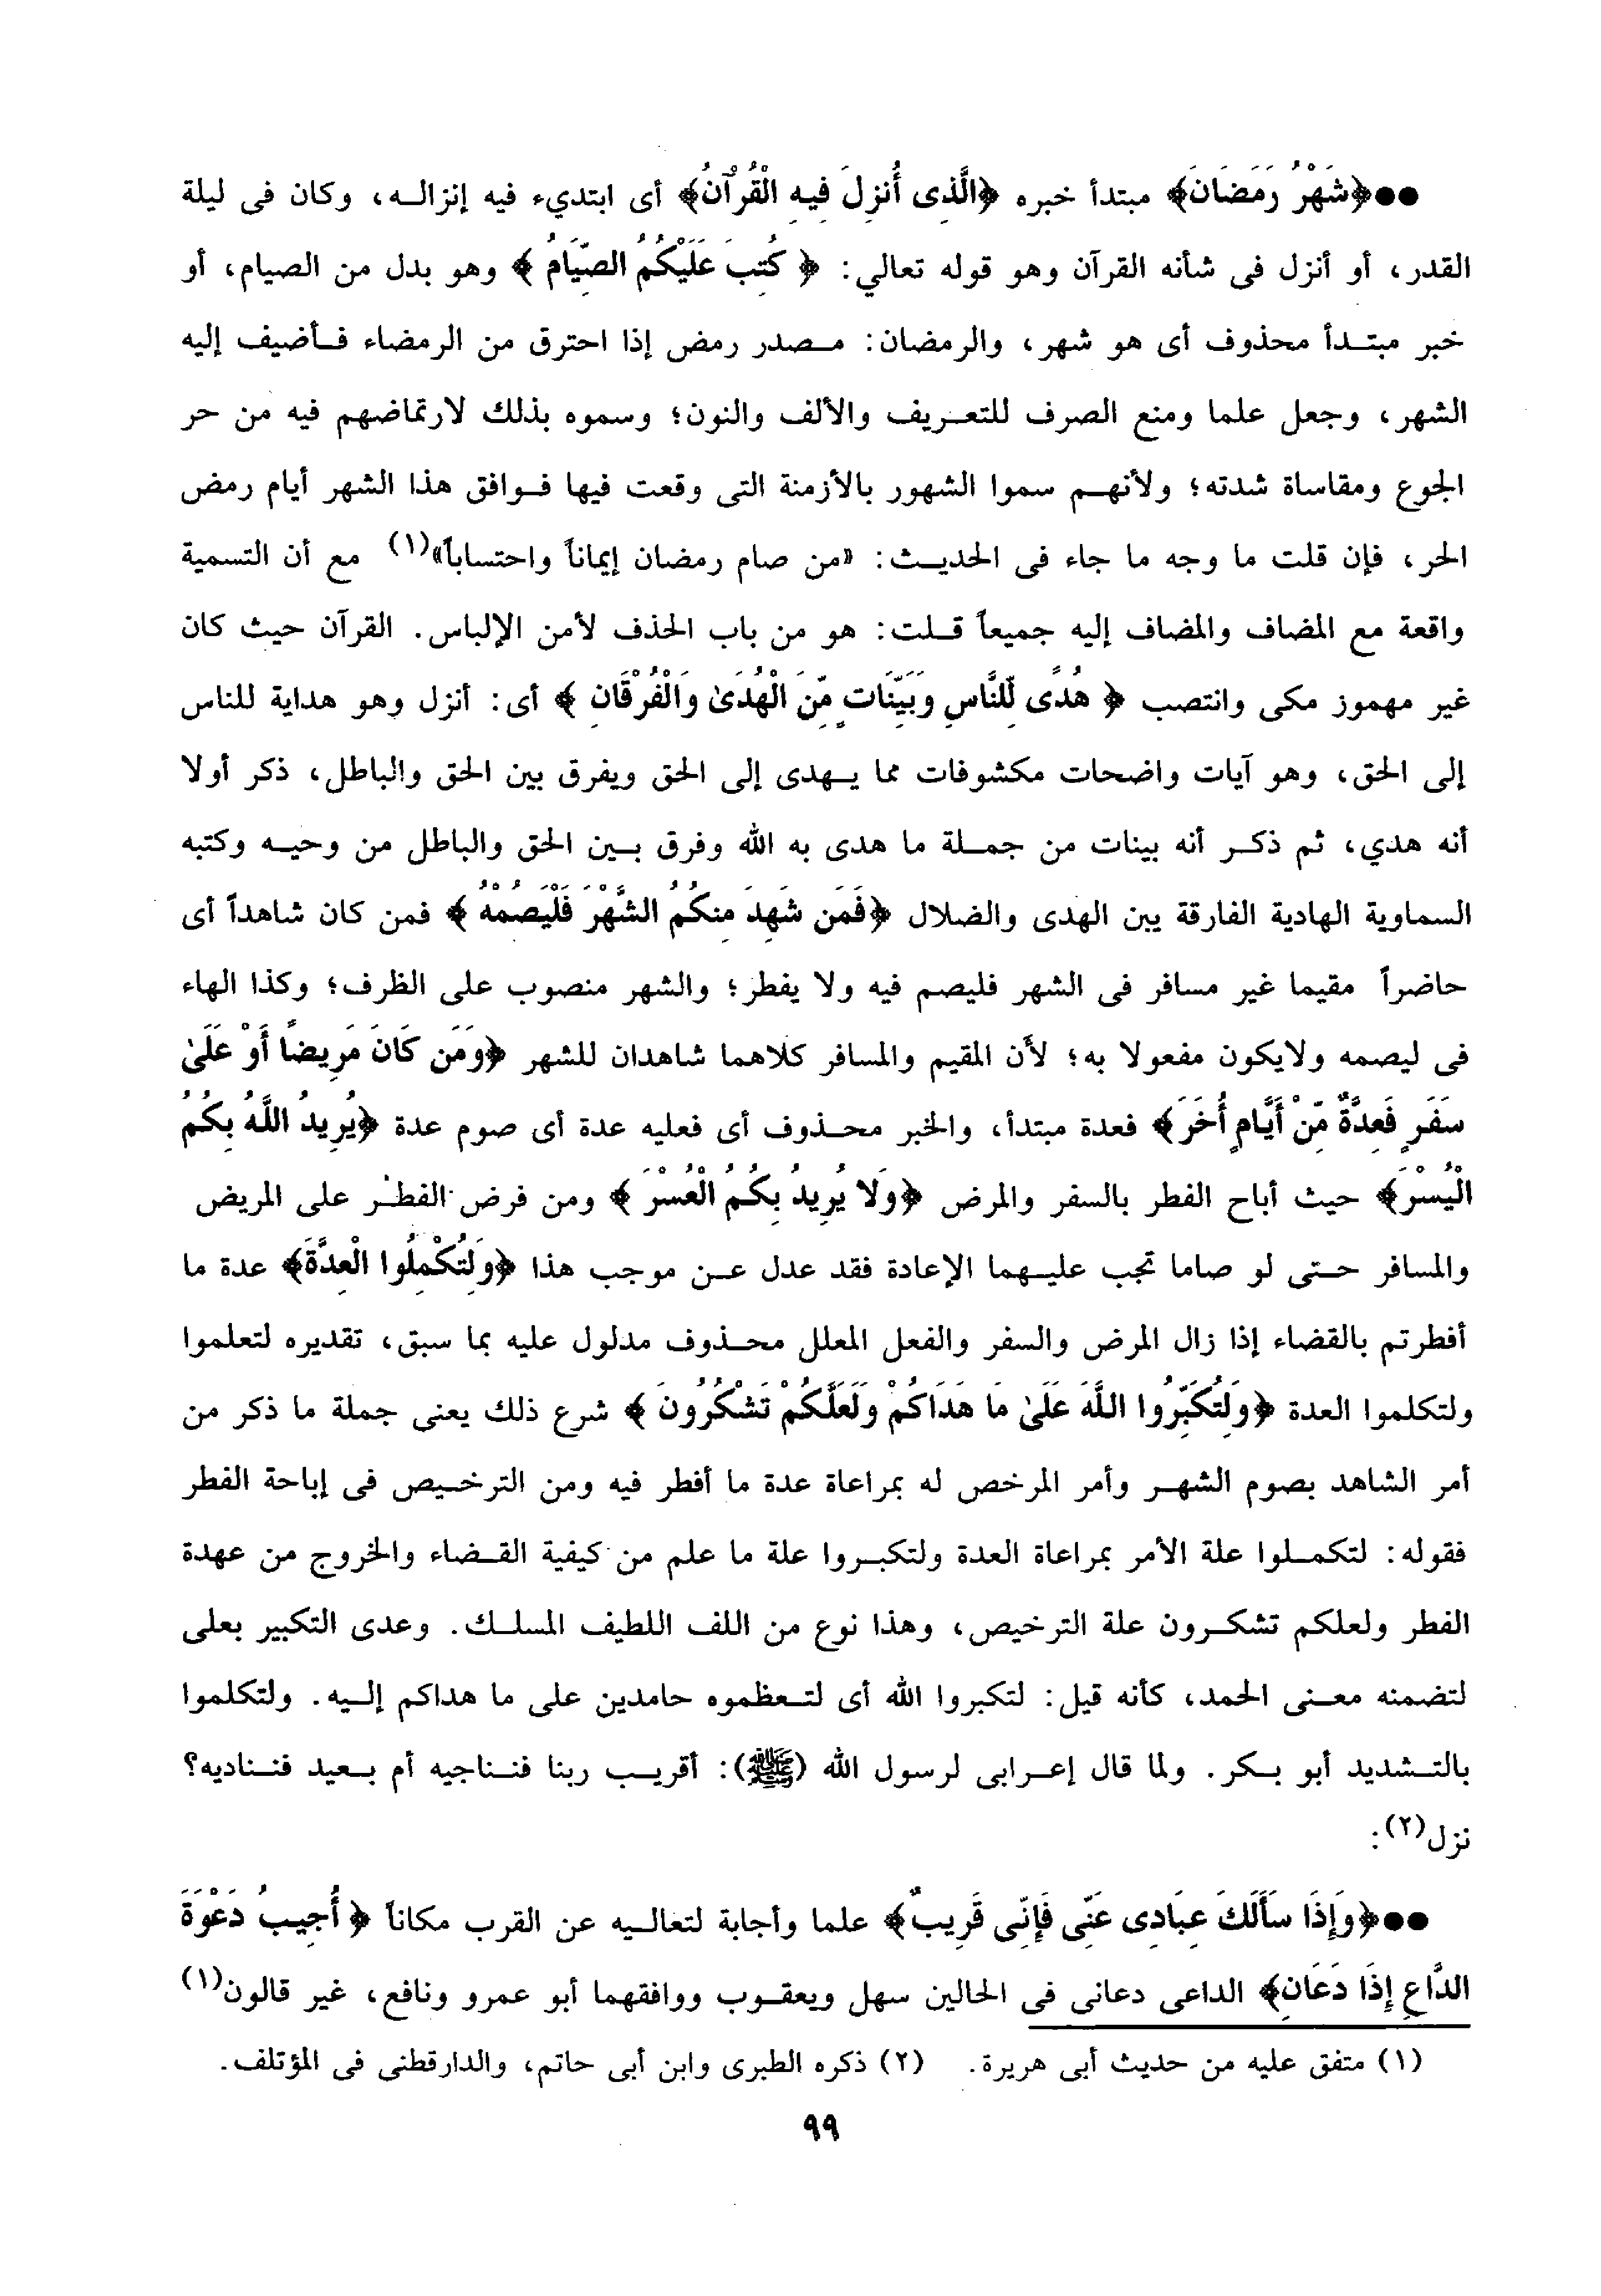 ●●﴿شَهْرُ رَمَضَانَ﴾ مبتدأ خبره ﴿الَّذِى أُنزِلَ فِيهِ الْقُرْآنُ﴾ أى ابتديء فيه إنزاله، وكان فى ليلة
القدر، أو أنزل فى شأنه القرآن وهو قوله تعالي: ﴿ كُتِبَ عَلَيْكُمُ الصِّيَامُ ﴾ وهو بدل من الصيام، أو
خبر مبتدأ محذوف أى هو شهر، والرمضان: مصدر رمض إذا احترق من الرمضاء فأضيف إليه
الشهر، وجعل علما ومنع الصرف للتعريف والألف والنون؛ وسموه بذلك لارتماضهم فيه من حر
الجوع ومقاساة شدته؛ ولأنهم سموا الشهور بالأزمنة التى وقعت فيها فوافق هذا الشهر أيام رمض
الحر، فإن قلت ما وجه ما جاء فى الحديث: «من صام رمضان إيماناً واحتساباً»(١) مع أن التسمية
واقعة مع المضاف والمضاف إليه جميعاً قلت: هو من باب الحذف لأمن الإلباس. القرآن حيث كان
غير مهموز مكى وانتصب ﴿ هُدًى لِّلنَّاسِ وَبَيِّنَاتٍ مِّنَ الْهُدَىٰ وَالْفُرْقَانِ ﴾ أى: أنزل وهو هداية للناس
إلى الحق، وهو آيات واضحات مكشوفات مما يهدى إلى الحق ويفرق بين الحق والباطل، ذكر أولا
أنه هدي، ثم ذكر أنه بينات من جملة ما هدى به الله وفرق بين الحق والباطل من وحيه وكتبه
السماوية الهادية الفارقة بين الهدى والضلال ﴿فَمَن شَهِدَ مِنكُمُ الشَّهْرَ فَلْيَصُمْهُ ﴾ فمن كان شاهداً أى
حاضراً مقيما غير مسافر فى الشهر فليصم فيه ولا يفطر؛ والشهر منصوب على الظرف؛ وكذا الهاء
فى ليصمه ولايكون مفعولا به؛ لأن المقيم والمسافر كلاهما شاهدان للشهر ﴿وَمَن كَانَ مَرِيضًا أَوْ عَلَىٰ
سَفَرٍ فَعِدَّةٌ مِّنْ أَيَّامٍ أُخَرَ﴾ فعدة مبتدأ، والخبر محذوف أى فعليه عدة أى صوم عدة ﴿يُرِيدُ اللَّهُ بِكُمُ
الْيُسْرَ﴾ حيث أباح الفطر بالسفر والمرض ﴿وَلا يُرِيدُ بِكُمُ الْعُسْرَ ﴾ ومن فرض الفطر على المريض
والمسافر حتى لو صاما تجب عليهما الإعادة فقد عدل عن موجب هذا ﴿وَلِتُكْمِلُوا الْعِدَّةَ﴾ عدة ما
أفطرتم بالقضاء إذا زال المرض والسفر والفعل المعلل محذوف مدلول عليه بما سبق، تقديره لتعلموا
ولتكلموا العدة ﴿وَلِتُكَبِّرُوا اللَّهَ عَلَىٰ مَا هَدَاكُمْ وَلَعَلَّكُمْ تَشْكُرُونَ ﴾ شرع ذلك يعنى جملة ما ذكر من
أمر الشاهد بصوم الشهر وأمر المرخص له بمراعاة عدة ما أفطر فيه ومن الترخيص فى إباحة الفطر
فقوله: لتكملوا علة الأمر بمراعاة العدة ولتكبروا علة ما علم من كيفية القضاء والخروج من عهدة
الفطر ولعلكم تشكرون علة الترخيص، وهذا نوع من اللف اللطيف المسلك. وعدى التكبير بعلى
لتضمنه معنى الحمد، كأنه قيل: لتكبروا الله أى لتعظموه حامدين على ما هداكم إليه. ولتكلموا
بالتشديد أبو بكر. ولما قال إعرابى لرسول الله (ﷺ): أقريب ربنا فنناجيه أم بعيد فنناديه؟
نزل(٢):
●●﴿وَإِذَا سَأَلَكَ عِبَادِى عَنِّى فَإِنِّى قَرِيبٌ﴾ علما وأجابة لتعاليه عن القرب مكاناً ﴿ أُجِيبُ دَعْوَةَ
الدَّاعِ إِذَا دَعَانِ﴾ الداعى دعانى فى الحالين سهل ويعقوب ووافقهما أبو عمرو ونافع، غير قالون(١)
(١) متفق عليه من حديث أبى هريرة. (٢) ذكره الطبرى وابن أبى حاتم، والدارقطنى فى المؤتلف.
٩٩